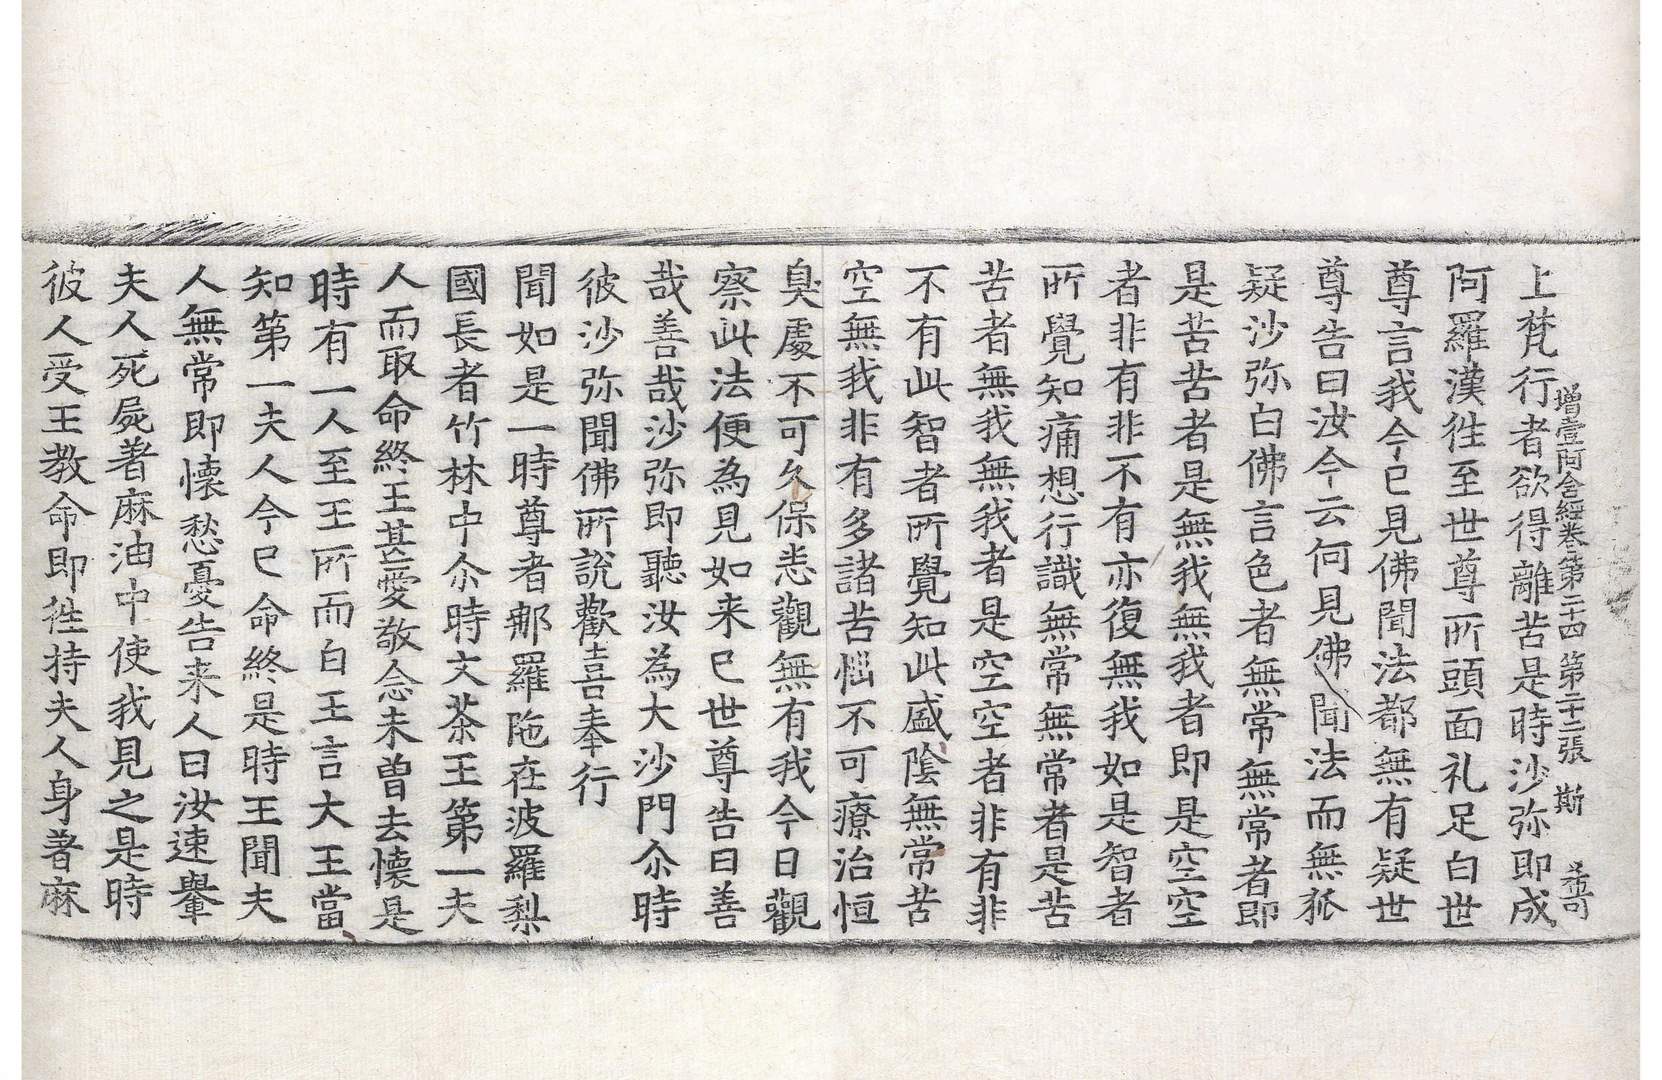 增壹阿含經卷第二十四 第二十二張 斯
上梵行者欲得離苦是時沙弥即成
阿羅漢徃至世尊所頭面礼足白世
尊言我今已見佛聞法都無有疑世
尊告曰汝今云何見佛聞法而無狐
疑沙弥白佛言色者無常無常者即
是苦苦者是無我無我者即是空空
者非有非不有亦復無我如是智者
所覺知痛想行識無常無常者是苦
苦者無我無我者是空空者非有非
不有此智者所覺知此盛陰無常苦
空無我非有多諸苦惱不可療治恒
臭處不可久保悉觀無有我今日觀
察此法便為見如来已世尊告曰善
哉善哉沙弥即聽汝為大沙門尒時
彼沙弥聞佛所說歡喜奉行
聞如是一時尊者那羅陁在波羅梨
國長者竹林中尒時文荼王第一夫
人而取命終王甚愛敬念未曾去懷是
時有一人至王所而白王言大王當
知第一夫人今已命終是時王聞夫
人無常即懷愁憂告来人曰汝速轝
夫人死屍著麻油中使我見之是時
彼人受王教命即徃持夫人身著麻